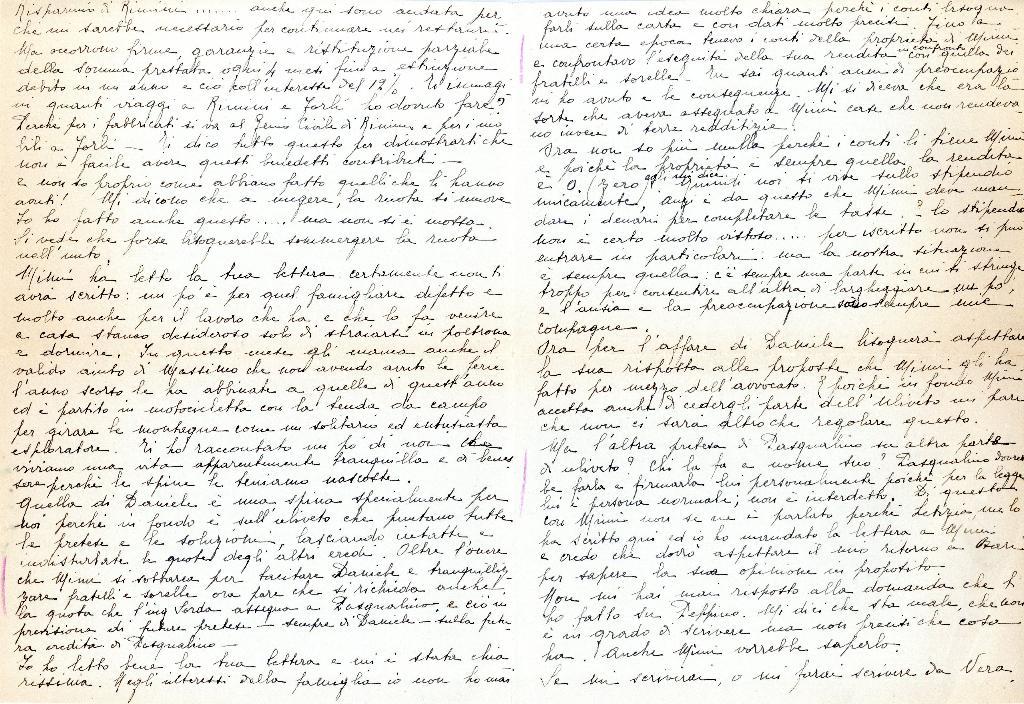 Risparmio di Rimini ...... anche qui sono andata per
che mi sarebbe necessario per continuare nei restauri.
Ma occorrono firme, garanzie e restituzione parziale
della somma prestata ogni 4 mesi fino a estinzione
debito in un anno e ciò coll'interesse del 12%. Ti immagi
ni quanti viaggi a Rimini e Forlì ho dovuto fare?
Perché per i fabbricati si va al Genio Civile di Rimini e per i mo
bili a Forlì — Ti dico tutto questo per dimostrarti che
non è facile avere questi benedetti contributi —
e non so proprio come abbiano fatto quelli che li hanno
avuti! Mi dicono che a ungere, la ruota si muove
Io ho fatto anche questo .... ma non si è mossa.
Si vede che forse bisognerebbe sommergere la ruota
nell'unto.
Mimì ha letto la tua lettera certamente non ti
avrà scritto: un pò è per quel famigliare difetto e
molto anche per il lavoro che ha e che lo fa venire
a casa stanco desideroso solo di sdraiarsi in poltrona
e dormire. In questo mese gli manca anche il
valido aiuto di Massimo che non avendo avuto le ferie
l'anno scorso le ha abbinate a quelle di quest'anno
ed è partito in motocicletta con la tenda da campo
per girare le montagne come un solitario ed entusiasta
esploratore. Ti ho raccontato un pò di noi che
viviamo una vita apparentemente tranquilla e di benes
sere perché le spine le teniamo nascoste.
Quella di Daniele è una spina specialmente per
noi perché in fondo è sull'uliveto che puntano tutte
le pretese e le soluzioni, lasciando intatte e
indisturbate le quote degli altri eredi. Oltre l'onere
che Mimì si sobbarca per tacitare Daniele e tranquilliz
zare fratelli e sorelle ora pare che si richieda anche
la quota che l'ing Sorda assegna a Pasqualino, e ciò in
previsione di future pretese — sempre di Daniele — sulla futu
ra eredità di Pasqualino —
Io ho letto bene la tua lettera e mi è stata chia
rissima. Negli interessi della famiglia io non ho mai
avuto una idea molto chiara perché i conti bisogna
farli sulla carta e con dati molto precisi. Fino a
una certa epoca tenevo i conti della proprietà di Mimì
e confrontavo l'esiguità della sua rendita in confronto con quella dei
fratelli e sorelle. Tu sai quanti anni di preoccupazio
ni ho avuto e le conseguenze. Mi si diceva che era la
sorte che aveva assegnato a Mimì case che non rendeva
no invece di terre redditizie.
Ora non so più nulla perché i conti li tiene Mimì
e poiché la proprietà è sempre quella, la rendita
è 0. (zero) Quindi noi si vive sullo stipendio
unicamente, anzi è da questo che Mimì deve man
dare i denari per completare le tasse? lo stipendio
non è certo molto vistoso..... per iscritto non si può
entrare in particolari: ma la nostra situazione
è sempre quella: c'è sempre una parte in cui si stringe
troppo per consentire all'altra di largheggiare un pò,
e l'ansia e la preoccupazione sono sempre mie
compagne.
Ora per l'affare di Daniele bisognerà aspettare
la sua risposta alle proposte che Mimì gli ha
fatto per mezzo dell'avvocato. E poiché in fondo Mimì
accetta anche di cedergli parte dell'uliveto mi pare
che non ci sarà altro che regolare questo.
Ma l'altra pretesa di Pasqualino su altra parte
di uliveto? Chi la fa a nome suo? Pasqualino dovreb
be farla e firmarla lui personalmente poiché per la legge
lui è persona normale; non è interdetto. Di questo
con Mimì non se ne è parlato perché Letizia me lo
ha scritto qui ed io ho mandato la lettera a Mimì
e credo che dovrò aspettare il mio ritorno a Bari
per sapere la sua opinione in proposito.
Non mi hai mai risposto alla domanda che ti
ho fatto su Peppino. Mi dici che sta male, che non
è in grado di scrivere ma non precisi che cosa
ha. Anche Mimì vorrebbe saperlo.
Se mi scriverai, o mi farai scrivere da Vera,